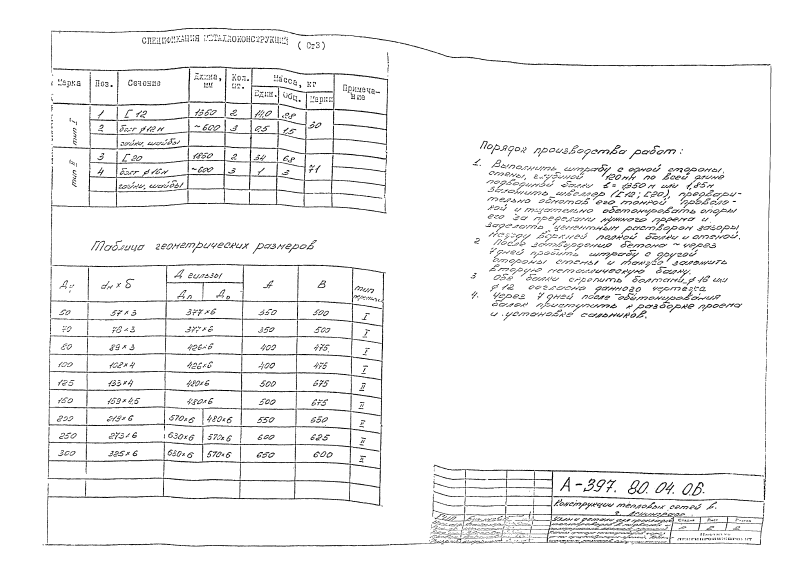 СПЕЦИФИКАЦИЯ МЕТАЛЛОКОНСТРУКЦИЙ (Ст3)
Марка Поз. Сечение Длина, мм Кол. шт. Масса, кг Примеча-ние
Един. Общ. Марки
тип I 1 [ 12 1350 2 14,0 28 30
2 болт ф12 н ~600 3 0,5 1,5
гайки, шайбы
тип II 3 [ 20 1850 2 34 68 71
4 болт ф16н ~600 3 1 3
гайки, шайбы
Таблица геометрических размеров
Ду dн × δ Д гильзы А В тип
Дп До
50 57×3 377×6 350 500 I
70 76×3 377×6 350 500 I
80 89×3 426×6 400 475 I
100 108×4 426×6 400 475 I
125 133×4 480×6 500 675 II
150 159×4,5 480×6 500 675 II
200 219×6 570×6 480×6 550 650 II
250 273×6 630×6 570×6 600 625 II
300 325×6 630×6 570×6 650 600 II
Порядок производства работ:
1. Выполнить штрабу с одной стороны,
стены, глубиной 120мм по всей длине
подводимой балки ℓ = 1350м или 1,85м
заложить швеллер ([12; [20), предвари-
тельно обмотав его тонкой проволо-
кой и тщательно обетонировать опоры
его за пределами нужного проема и
заделать цементным раствором зазоры
между верхней полкой балки и стеной.
2 После затвердения бетона ~ через
7 дней пробить штрабу с другой
стороны стены и также заложить
вторую металлическую балку.
3 Обе балки скрепить болтами ф16 или
ф12 согласно данного чертежа
4. Через 7 дней после обетонирования
балок приступить к разборке проема
и установке сальников.
А-397. 80. 04. 0Б.
Конструкции тепловых сетей в
г.